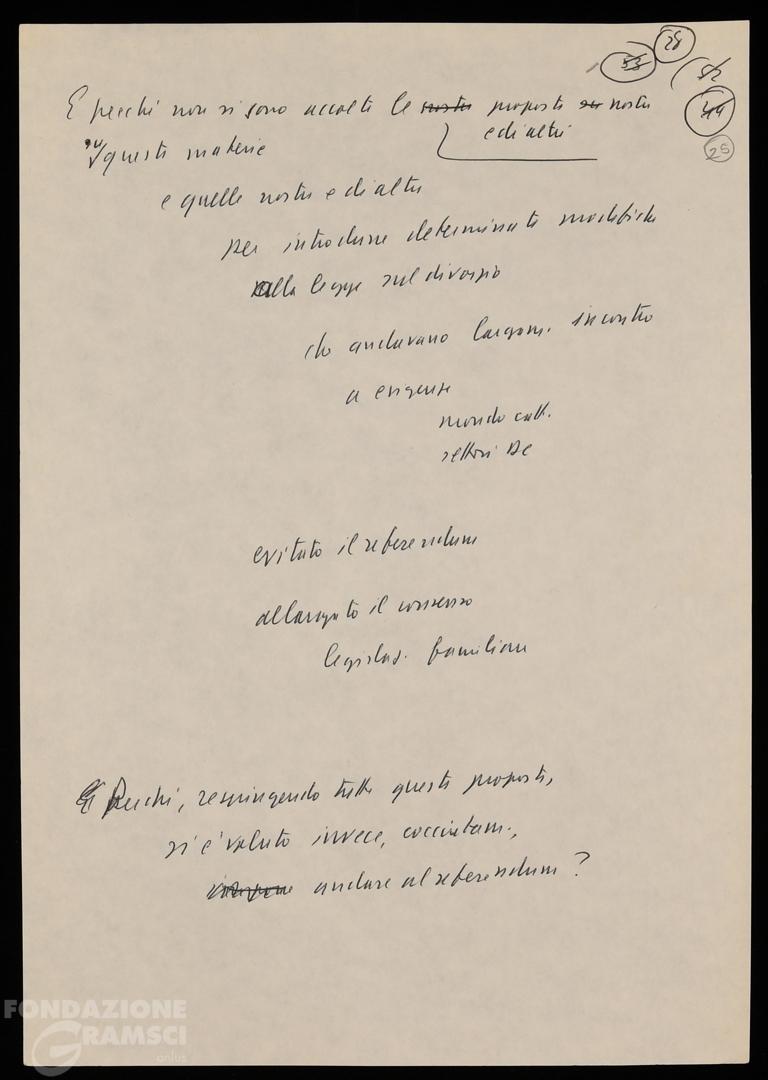 28
53
52
44
25
E perché non si sono accolte le nostre proposte su nostre
e di altri
su queste materie
e quelle nostre e di altri
per introdurre determinate modifiche
alla legge sul divorzio
che andavano largam. incontro
a esigenze
mondo catt.
settori DC
evitato il referendum
allargato il consenso
legislaz. familiare
E Perché, respingendo tutte queste proposte,
si è voluto invece, cocciutam.,
andare al referendum?
FONDAZIONE
GRAMSCI
onlus